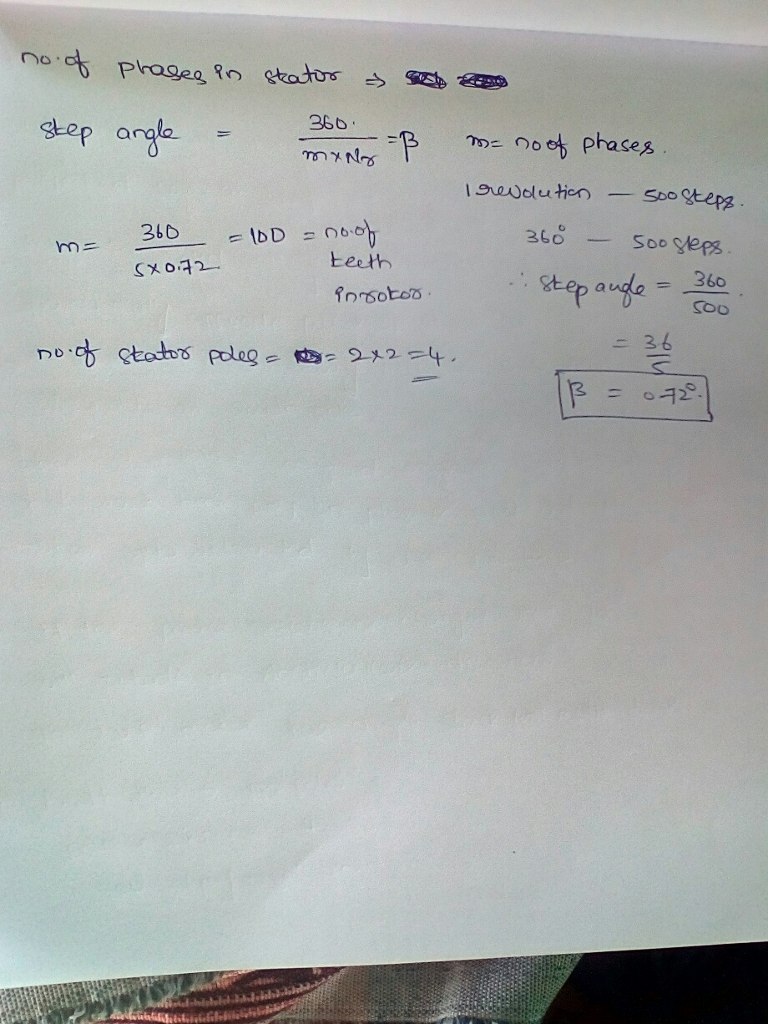 no. of phases in stator ⇒
step angle = 360. / m×Nr = β
m = no of phases.
1 revolution — 500 steps.
360° — 500 steps.
∴ step angle = 360 / 500.
= 36 / 5
β = 0.72°.
m = 360 / 5×0.72 = 100 = no. of teeth in rotor.
no. of stator poles = = 2×2 = 4.